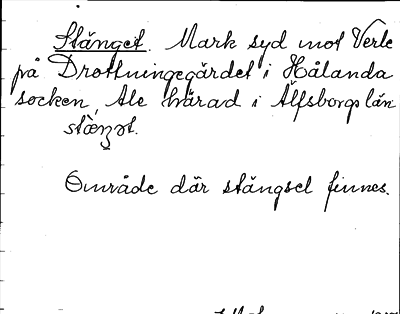 Stänget. Mark syd mot Verle
på Drottningegärdet i Hålanda
socken, Ale härad i Älfsborgs län
stæŋət.
Område där stängsel finnes.